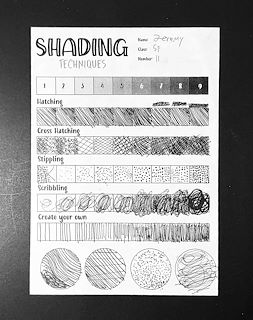 SHADING
TECHNIQUES
Name Jeremy
Class
Number 11
1 2 3 4 5 6 7 8 9
Hatching
Cross Hatching
Stippling
Scribbling
Create your own